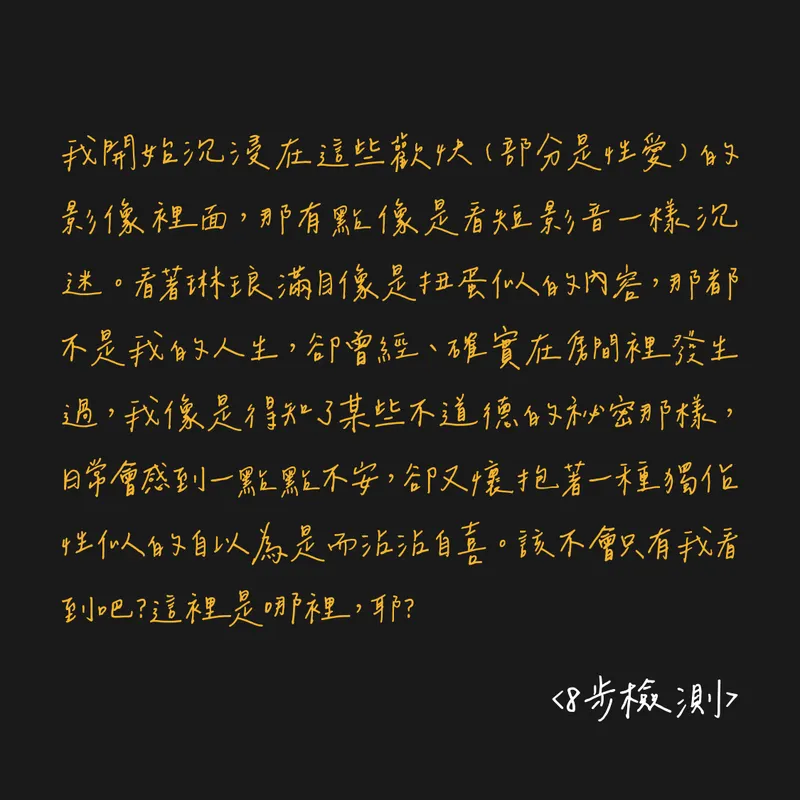 我開始沉浸在這些歡快(部分是性愛)的
影像裡面,那有點像是看短影音一樣沉
迷。看著琳琅滿目像是扭蛋似的內容,那都
不是我的人生,卻曾經、確實在房間裡發生
過,我像是得知了某些不道德的祕密那樣,
日常會感到一點點不安,卻又懷抱著一種獨佔
性似的自以為是而沾沾自喜。該不會只有我看
到吧?這裡是哪裡,耶?
<8步檢測>